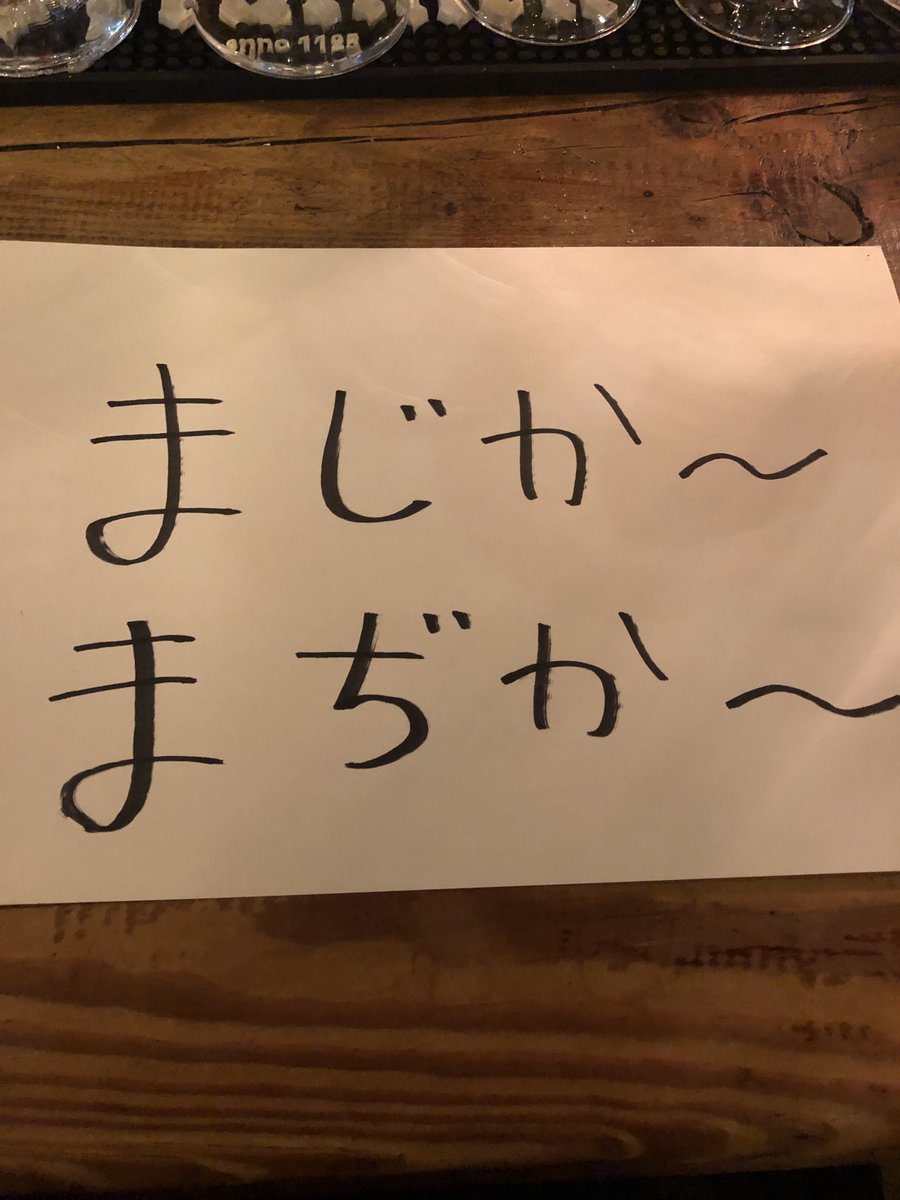 anno 1125
まじか〜
まぢか〜